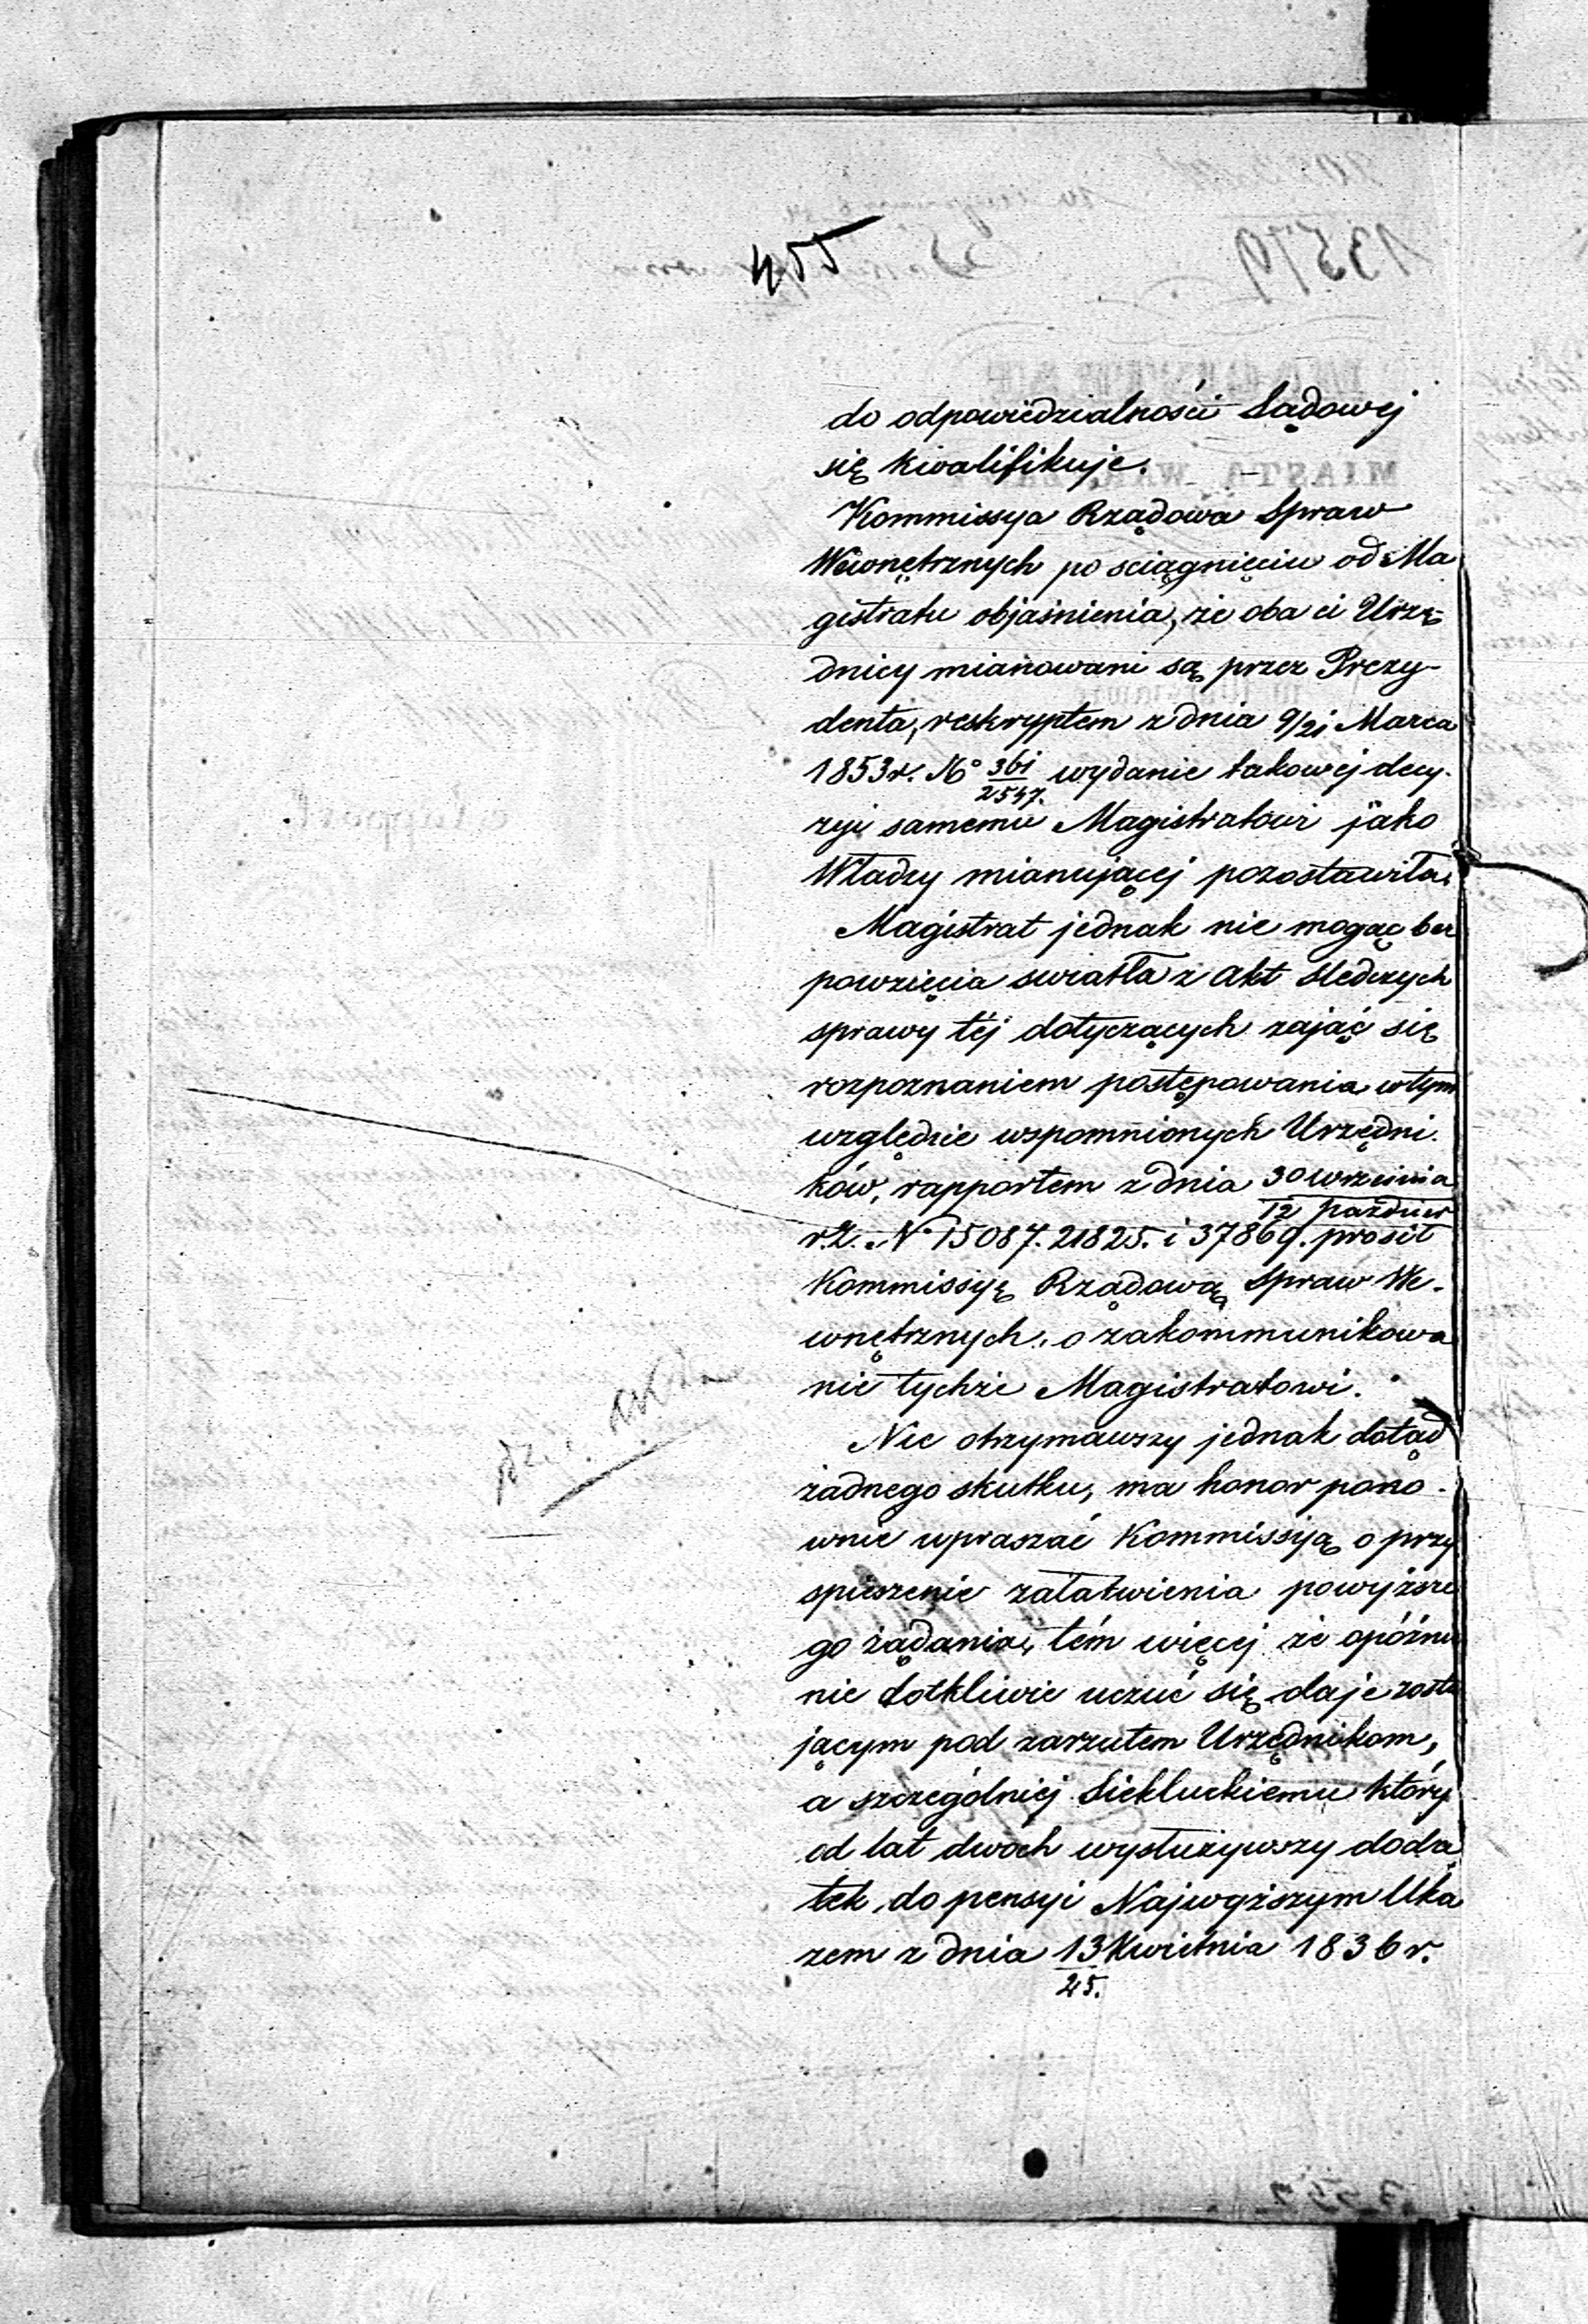 455
do odpowiedzialności Sądowej
się kwalifikuje.
Kommissya Rządowa Spraw
Wewnętrznych po sciągnięciu od Ma
gistratu objaśnienia, że oba ci Urzę-
dnicy mianowani są przez Prezy-
denta, reskryptem z dnia 9/21 Marca
1853 r. No 361/2547. wydanie takowej decy-
zyi samemu Magistratowi jako
Władzy mianującej pozostawiła.
Magistrat jednak nie mogąc bez
powzięcia swiatła z akt śledczych
sprawy téj dotyczących zająć się
rozpoznaniem postępowania w tym
względzie wspomnionych Urzędni-
ków, rapportem z dnia 30 września / 12 paździer
r.z. No 15087. 21825. i 37869. prosił
Kommissyę Rządową Spraw We-
wnętrznych, o zakommunikowa
nie tychże Magistratowi.
Nie otrzymawszy jednak dotąd
żadnego skutku, ma honor pono-
wnie upraszać Kommissyą o przy
spieszenie załatwienia powyższe
go żądania, tém więcej że opóźnie
nie dotkliwie uczuć się daje zosta
jącym pod zarzutem Urzędnikom,
a szczególniej Siekluckiemu który
od lat dwóch wysłużywszy doda
tek do pensyi Najwyższym Uka
zem z dnia 13/25. Kwietnia 1836 r.